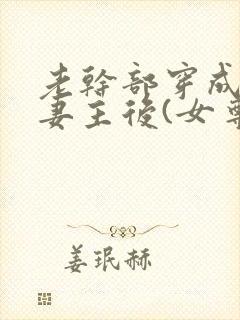 老幹部穿成
妻主後(女尊
姜珉赫